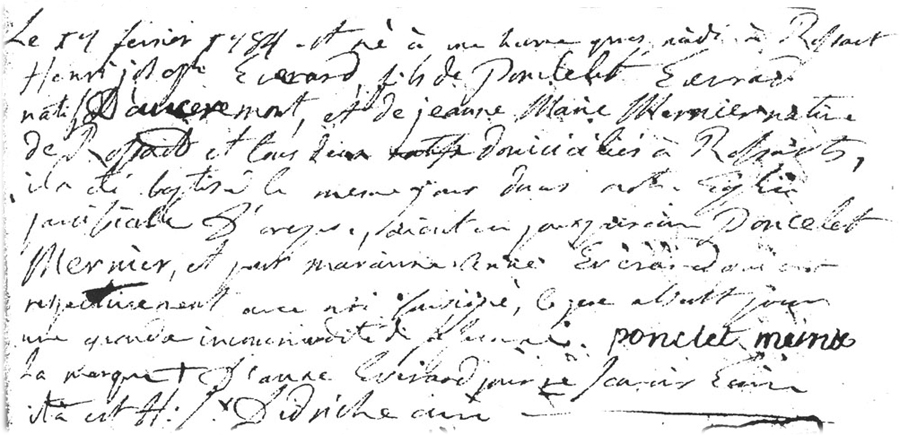 Le 17 fevrier 1784 est né à une heure apres midi à Rossart
Henri joseph Everard, fils de Poncelet Everard
natif D'auceremont, et de jeanne Marie Mernier native
de Rossart et tous deux domiciliés à Rossarts,
il a été baptisé le meme jour dans notre Eglise
paroissiale D'orgeo, aiant eu pour parain Poncelet
Mernier, et pour maranne Anne Everard qui ont
respectivement avec moi soussigné, ce que dessus jour
une grande incommodité de
ponclet mernie
La marque + D'anne Everard pour ne scavoir Ecrire
ita est H: J: Didriche curé